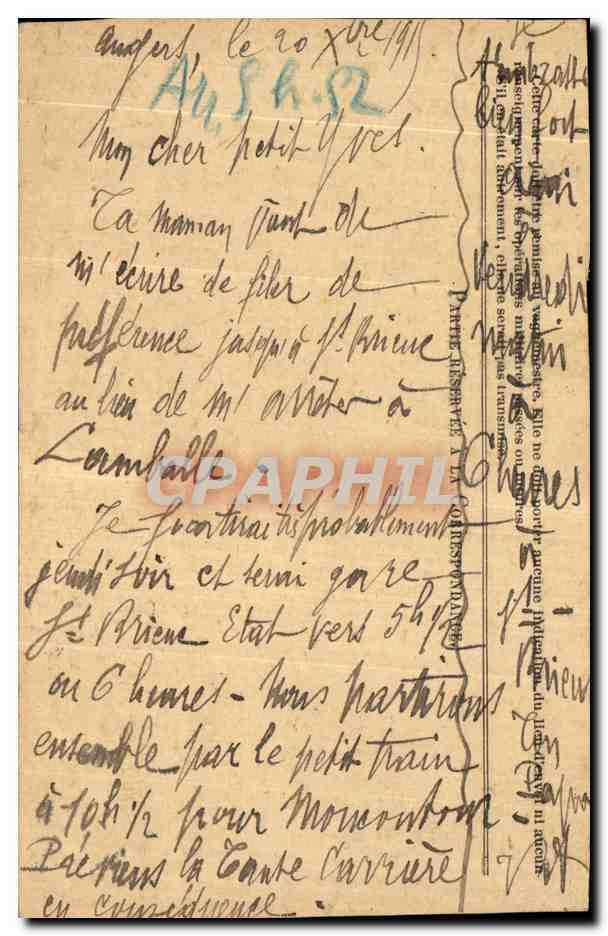 Angers, le 20 Xbre 1915
Arr. 5h.52
Mon cher petit Yves.
Ta maman vient de
m'écrire de filer de
préférence jusqu'à St. Brieuc
au lieu de m'arrêter à
Lamballe.
Je partirai très probablement
jeudi soir et serai gare
St. Brieuc Etat vers 5h 1/2
ou 6 heures - Nous partirons
ensemble par le petit train
à 10h 1/2 pour Moncontour
Préviens la Tante Carrière
en conséquence.
PARTIE RÉSERVÉE A LA CORRESPONDANCE.
Cette carte doit être remise au vaguemestre. Elle ne doit porter aucune indication du lieu d'envoi ni aucun
renseignement sur les opérations militaires passées ou futures.
S'il en était autrement, elle ne serait pas transmise.
Je
t'embrasse
bien fort
Vendredi
matin
6 heures
à
St
Brieuc
CPARPHIL